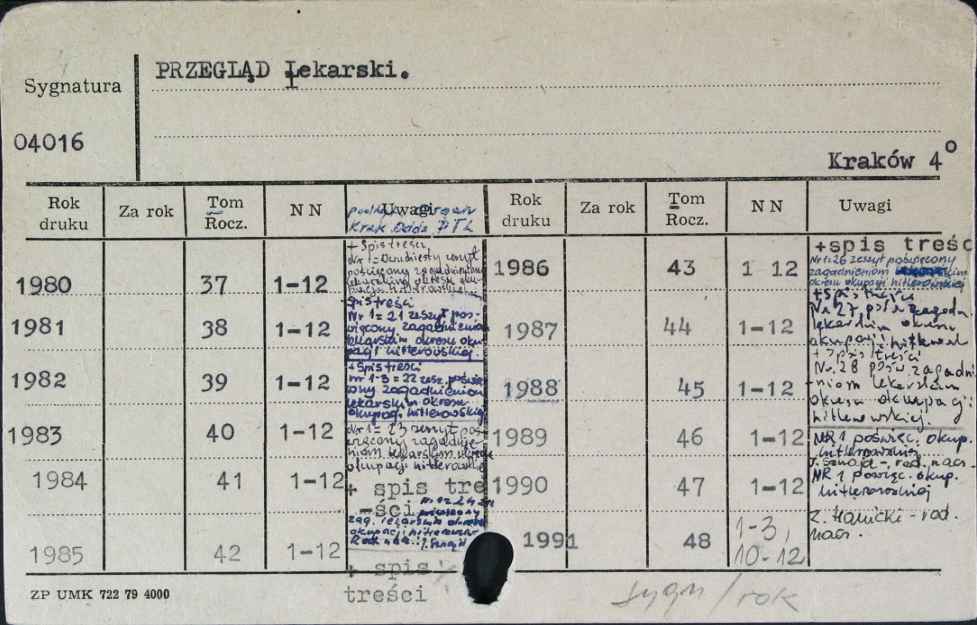 Sygnatura
PRZEGLĄD Lekarski.
04016
Kraków 4°
Rok druku Za rok Tom Rocz. NN Uwagi Rok druku Za rok Tom Rocz. NN Uwagi
Krak. Oddz. PTL
1980 37 1-12
+ Spis treści
Nr 1 = Dwudziesty zeszyt
poświęcony zagadnieniom
1981 38 1-12
Spis treści
Nr 1 = 21 zeszyt poś-
więcony zagadnieniom
lekarskim okresu oku
pacji hitlerowskiej.
1982 39 1-12
+ Spis treści
nr 1-3 = 22 zesz. poświę
cony zagadnieniom
lekarskim okresu
okupacji hitlerowskiej
1983 40 1-12
Nr 1 = 23 zeszyt poś-
więcony zagadnie
niom lekarskim okresu
okupacji hitlerowskiej
1984 41 1-12
+ spis tre
-ści
zag. lekarskim okresu
okupacji hitlerowskiej
1985 42 1-12
+ spis
treści
1986 43 1 12
+spis treśc
Nr 1=26 zeszyt poświęcony
zagadnieniom
okresu okupacji hitlerowskiej
1987 44 1-12
+ Spis treści
Nr 27 pośw zagadni
lekarskim okresu
okupacji hitlerowsk
1988 45 1-12
+ Spis treści
Nr. 28 pośw zagadni
niom lekarskim
okresu okupacji
hitlerowskiej.
1989 46 1-12
NR 1 poświęc. okup.
hitlerowskiej
red. nacz.
1990 47 1-12
NR 1 poświęc. okup.
hitlerowskiej
1991 48 1-3,
10-12
red.
nacz.
ZP UMK 722 79 4000
sygn / rok